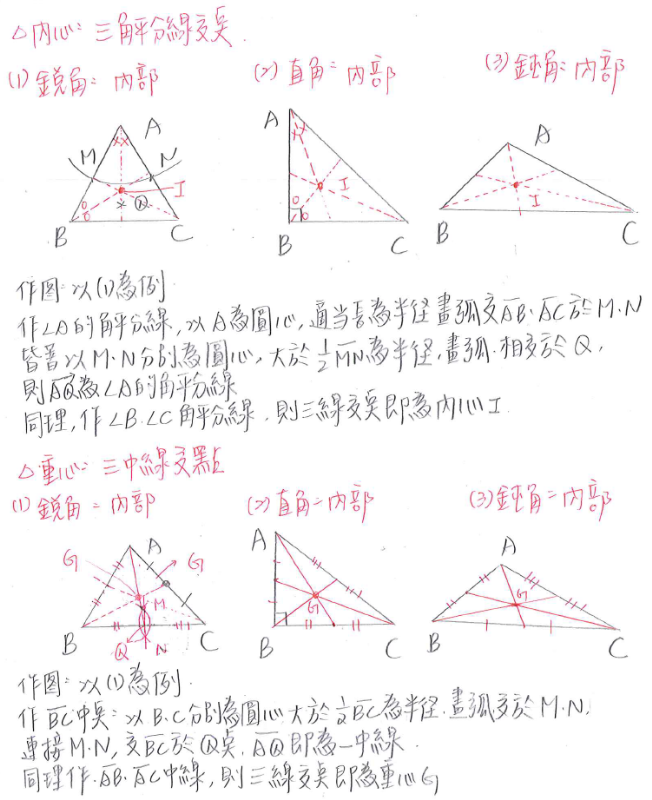 △內心:三角平分線交點.
(1)銳角:內部 (2)直角:內部 (3)鈍角:內部
A M N I Q B C
A I B C
A I B C
作图:以(1)為例
作∠A的角平分線,以A為圓心,適当長為半径畫弧交AB·AC於M·N
皆著以M·N分別為圓心,大於½MN為半径,畫弧.相交於Q,
則AQ為∠A的角平分線
同理,作∠B.∠C角平分線.則三線交點即為內心I
△重心:三中線交點
(1)銳角=內部 (2)直角=內部 (3)鈍角=內部
G A G M B Q N C
A G B C
A G B C
作图:以(1)為例.
作BC中點:以B·C分別為圓心大於½BC為半径.畫弧交於M·N.
連接M·N,交BC於Q點.AQ即為一中線
同理作.AB.AC中線,則三線交點即為重心G